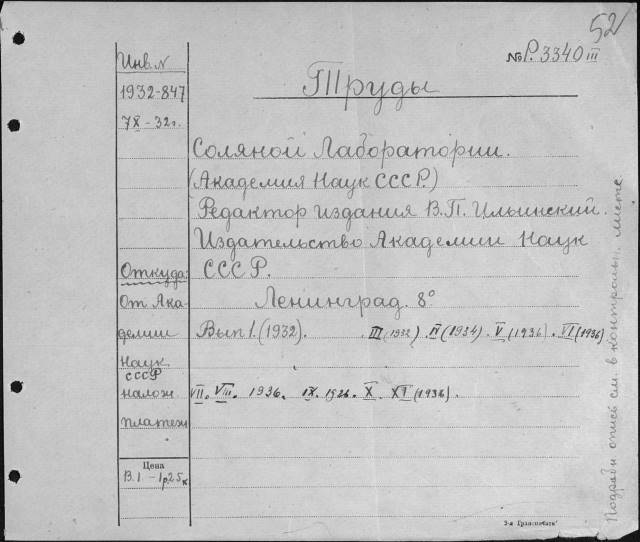 52
№ Р. 3340 III
Инв. N
1932-847
7 X - 32 г.
Труды
Соляной Лаборатории.
(Академия Наук СССР.)
Редактор издания В.П. Ильинский.
Издательство Академии Наук
СССР.
Ленинград. 8°
Откуда:
От Ака-
демии
Наук
СССР
налож.
платеж
Вып 1. (1932). III (1932) . IV (1934) . V (1936) . VI (1936)
VII. VIII. 1936. IX. 1936. X. XI (1936).
Цена
В. 1 - 1р.25к
Подробн опись см. в контрольн. листе.
3-я Транспечать